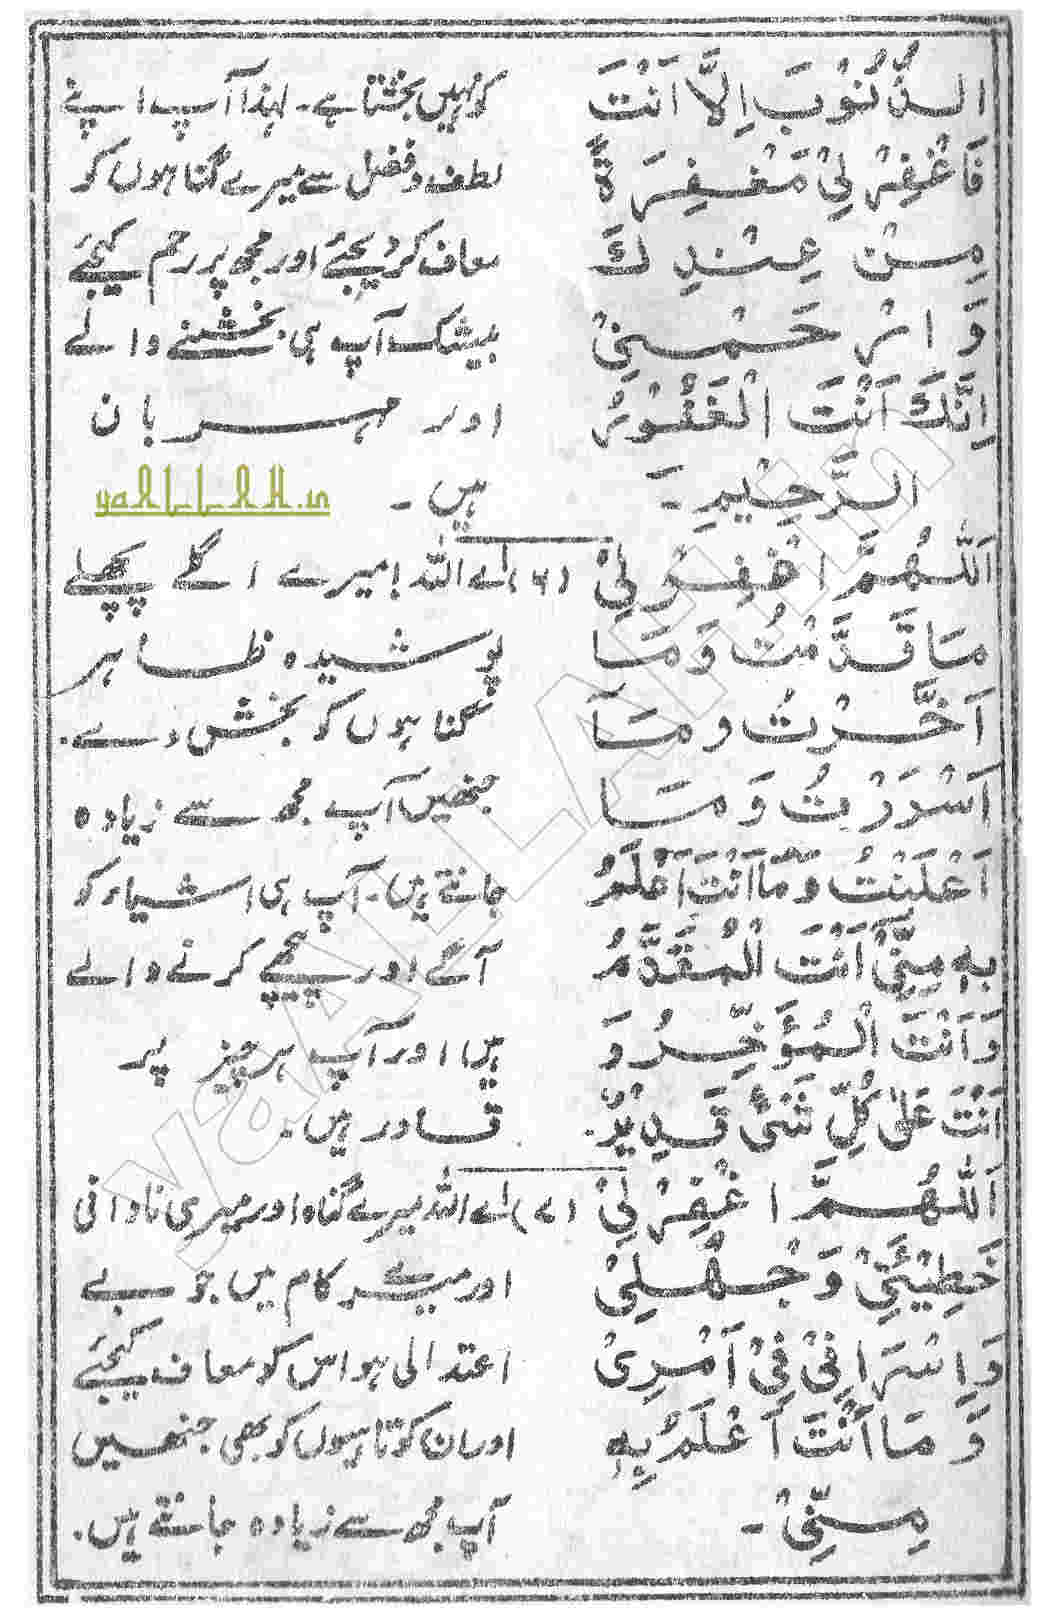 الذُّنُوْبَ اِلَّا اَنْتَ
فَاغْفِرْ لِیْ مَغْفِرَةً
مِنْ عِنْدِكَ
وَ ارْحَمْنِیْ
اِنَّكَ اَنْتَ الْغَفُوْرُ
الرَّحِیْمِ ۔
کو نہیں بخشتا ہے ۔ لہذا آپ اپنے
لطف و فضل سے میرے گناہوں کو
معاف کر دیجئے اور مجھ پر رحم کیجئے
بیشک آپ ہی بخشنے والے
اور مہربان
ہیں ۔
yaALLAH.in
اَللّٰهُمَّ اغْفِرْ لِیْ
مَا قَدَّمْتُ وَ مَا
اَخَّرْتُ و مَآ
اَسْرَرْتُ وَ مَا
اَعْلَنْتُ وَمَا اَنْتَ اَعْلَمُ
بِهٖ مِنِّیْ اَنْتَ الْمُقَدَّمُ
وَ اَنْتَ الْمُؤَخِّرُ وَ
اَنْتَ عَلٰی كُلِّ شَیْئٍ قَدِیْرٌ.
(۶) اے اللہ! میرے اگلے پچھلے
پوشیدہ ظاہر
گناہوں کو بخش دے.
جنھیں آپ مجھ سے زیادہ
جانتے ہیں۔ آپ ہی اشیاء کو
آگے اور پیچھے کرنے والے
ہیں اور آپ ہر چیز پر
قادر ہیں.
اَللّٰهُمَّ اغْفِرْ لِیْ
خَطِیْئَتِیْ وَ جَهْلِیْ
وَ اِسْرَافِیْ فِیْ اَمْرِیْ
وَ مَا اَنْتَ اَعْلَمُ بِهٖ
مِنِّیْ ۔
(۷) اے اللہ میرے گناہ اور میری نادانی
اور میرے کام میں جو بے
اعتدالی ہو اس کو معاف کیجئے
اور ان کوتاہیوں کو بھی جنھیں
آپ مجھ سے زیادہ جانتے ہیں.
yaALLAH.in